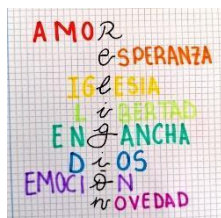 AMOR
eSPERANZA
IGlESIA
LiBERTAD
ENgANCHA
DiOS
EMOCIóN
nOVEDAD